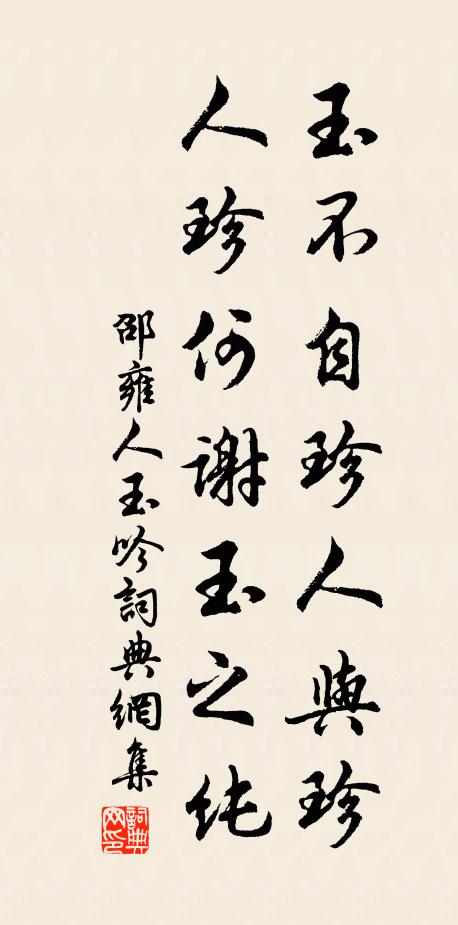 玉不自珍人與珍
人珍何謝玉之纯
邵雍人玉吟詞典網集
詞典網印